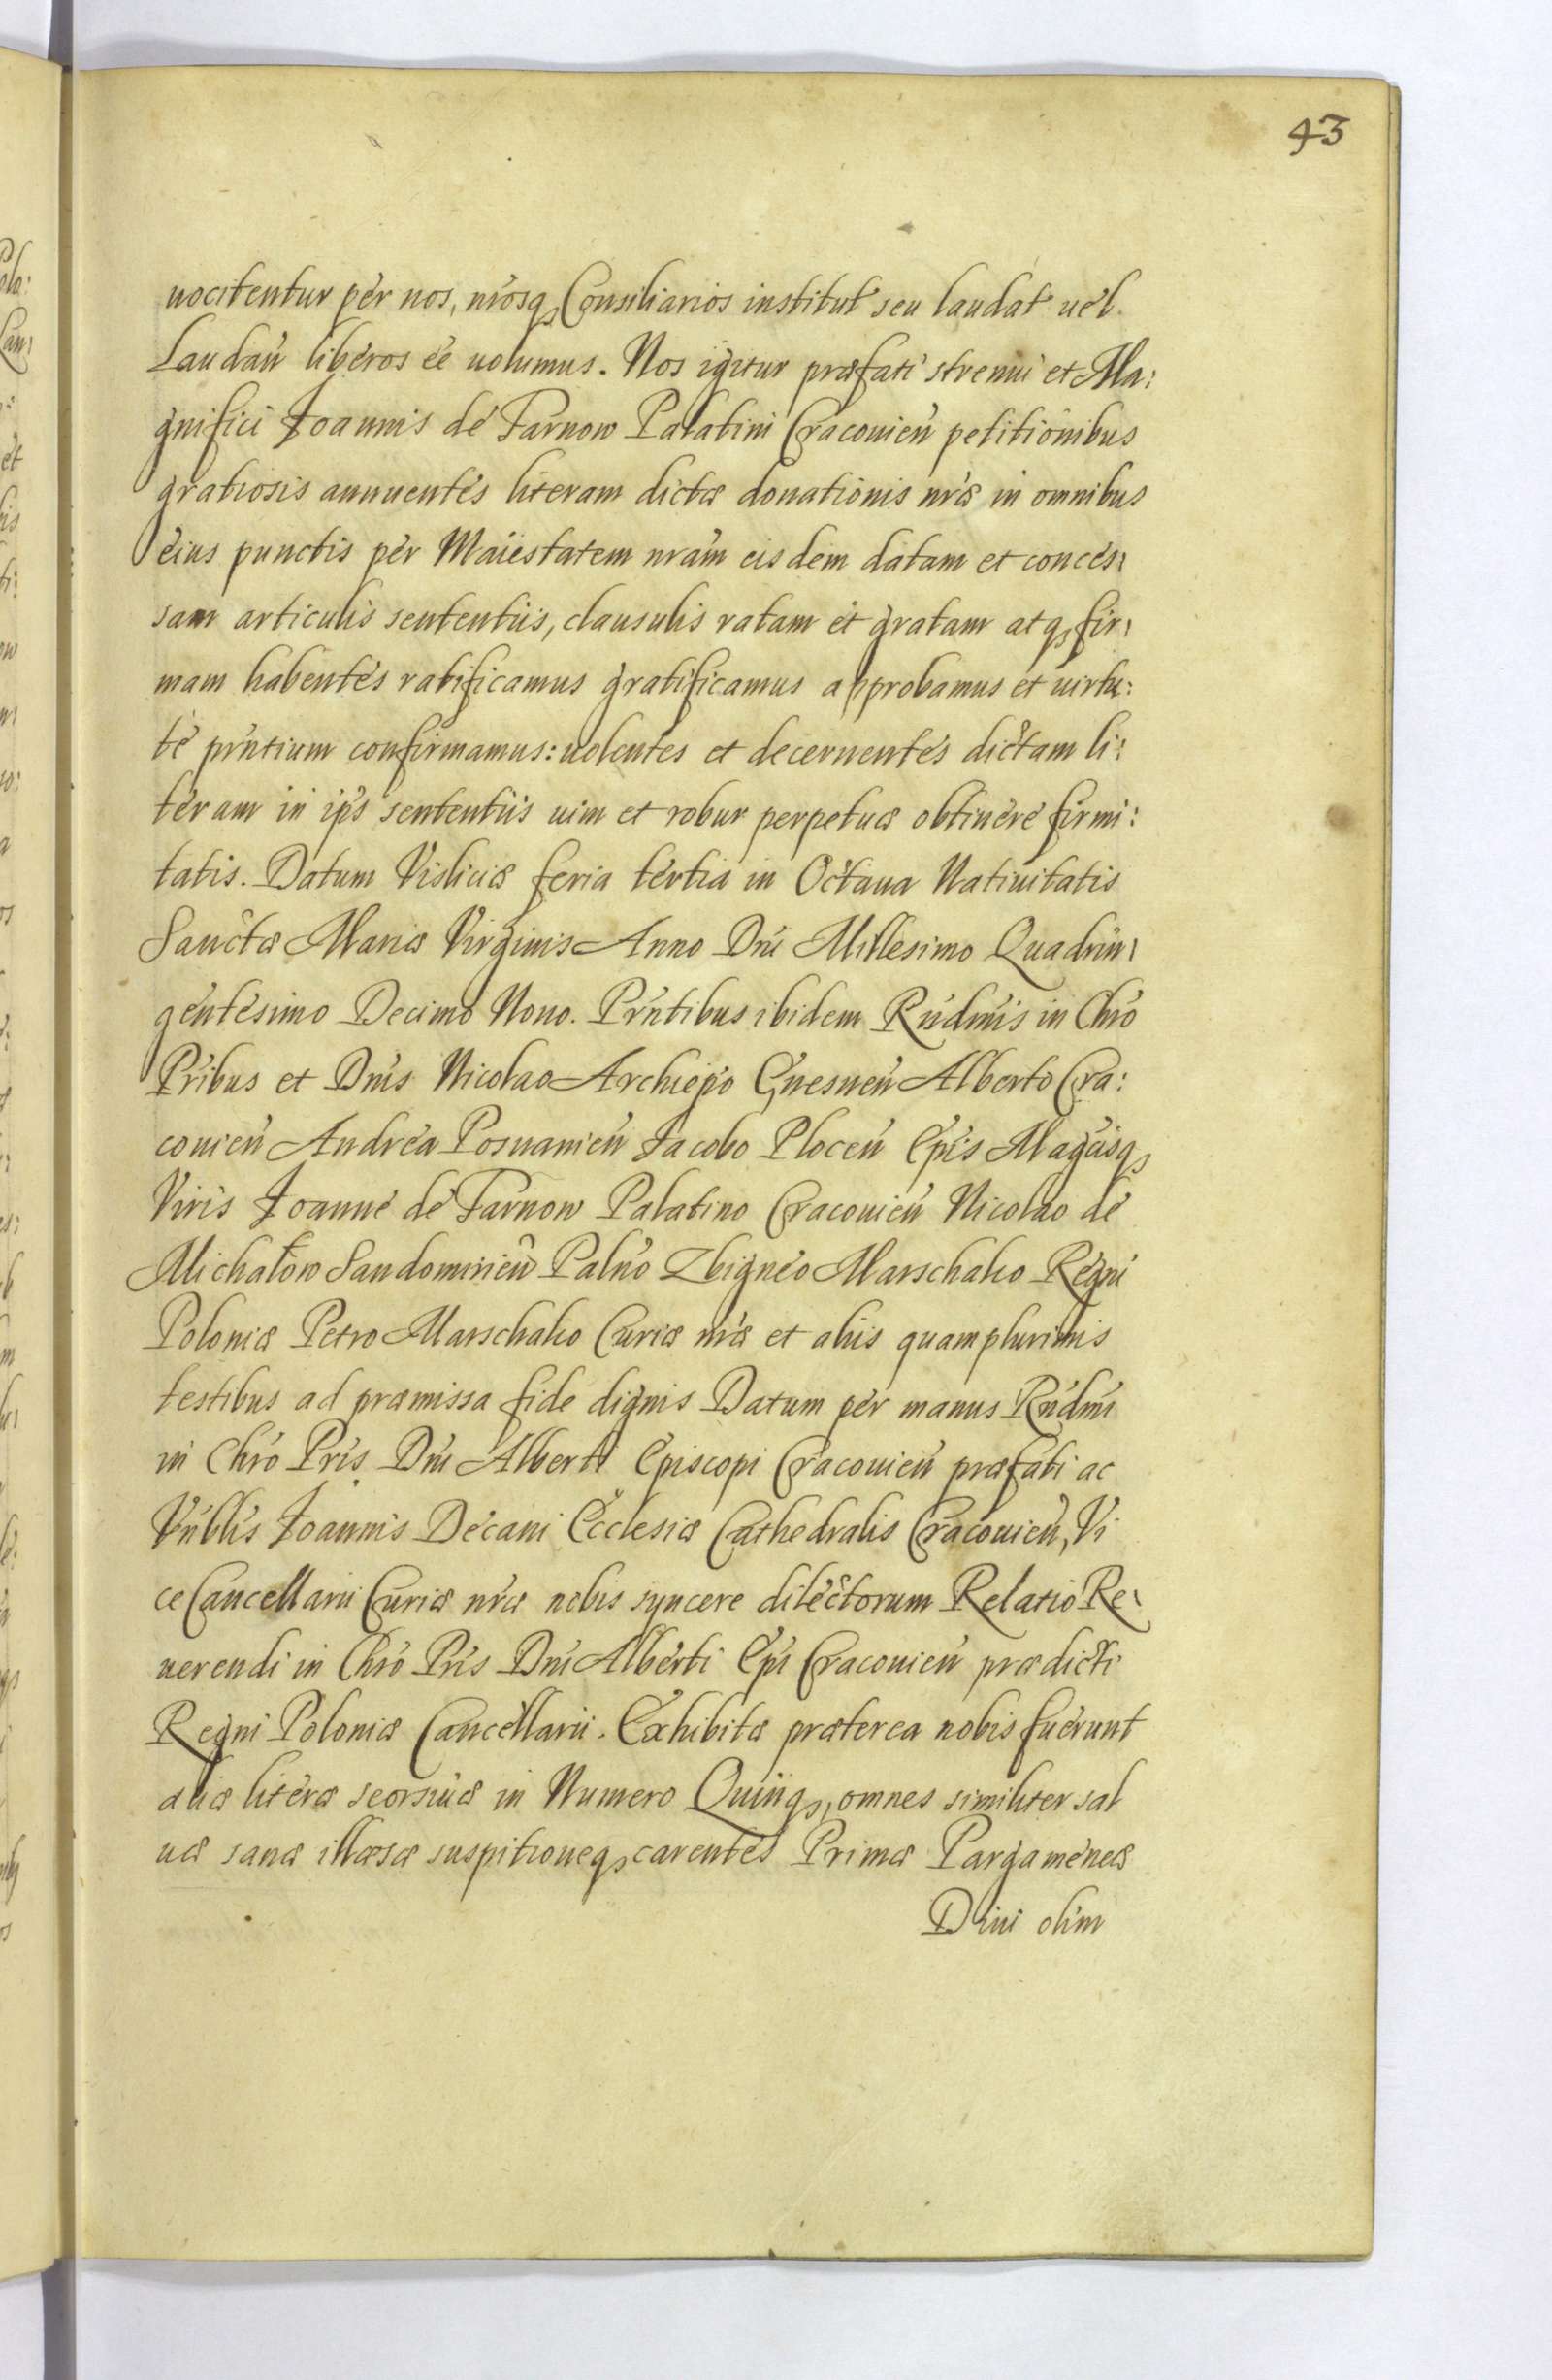 43
uocitentur per nos, nrosq, Consiliarios institut seu laudat uel
Laudan liberos ee uolumus. Nos igitur præfati strenui et Ma:
gnifici Joannis de Tarnow Palatini Cracouien petitionibus
gratiosis annuentes literam dictæ donationis nræ in omnibus
eius punctis per Maiestatem nram eisdem datam et conces
sam articulis sententiis, clausulis ratam et gratam atq, fir
mam habentes ratificamus gratificamus approbamus et uirtu:
te prntium confirmamus: uolentes et decernentes dictam li:
teram in ips sententiis uim et robur perpetuæ obtinere firmi:
tatis. Datum Visliciæ feria tertia in Octaua Natiuitatis
Sanctæ Mariæ Virginis Anno Dni Millesimo Quadrin
gentesimo Decimo Nono. Prntibus ibidem Rndmis in Chro
Pribus et Dnis Nicolao Archiepo Gnesnen Alberto Cra:
couien Andrea Posnanien Jacobo Plocen Epis Magcisq,
Viris Joanne de Tarnow Palatino Cracouien Nicolao de
Michałow Sandomirien Palno Zbigneo Marschalco Regni
Poloniæ Petro Marschalco Curiæ nræ et aliis quamplurimis
testibus ad præmissa fide dignis Datum per manus Rndmi
in Chro Pris Dni Alberti Episcopi Cracouien præfati ac
Vnblis Joannis Decani Ecclesiæ Cathedralis Cracouien, Vi
ce Cancellarii Curiæ nræ nobis syncere dilectorum Relatio Re
uerendi in Chro Pris Dni Alberti Epi Cracouien prædicti
Regni Poloniæ Cancellarii. Exhibitæ præterea nobis fuerunt
aliæ literæ seorsiuæ in Numero Quinq, omnes similiter sal
uæ sanæ illæsæ suspitioneq, carentes Primæ Pargameneæ
Diui olim